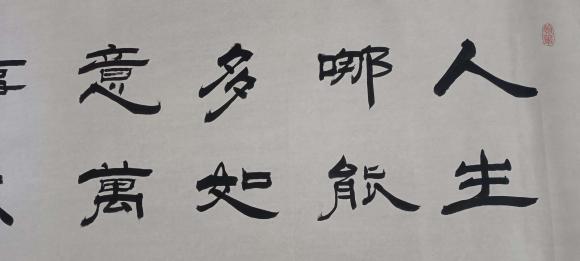 人生
哪能
多如
意萬